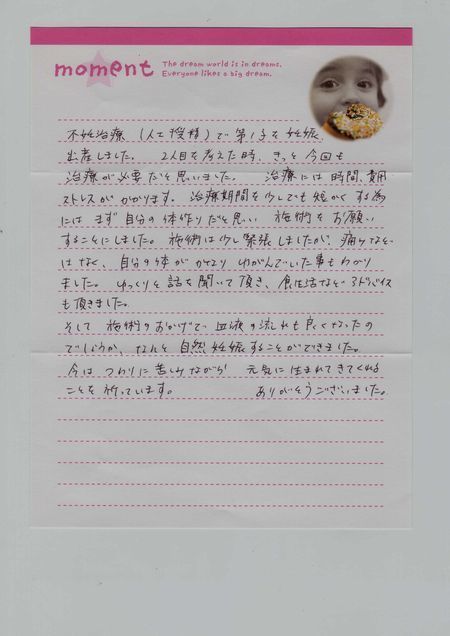 moment
The dream world is in dreams.
Everyone likes a big dream.
不妊治療 (人工授精) で第1子を妊娠
出産しました。 2人目を考えた時、きっと今回も
治療が必要だと思いました。 治療には時間、費用
ストレスがかかります。治療期間を少しでも短かくする為
にはまず自分の体作りだと思い 施術をお願い
することにしました。施術は少し緊張しましたが、痛けなどは
はなく、自分の体がかなりゆがんでいた事もわかり
ました。ゆっくりと話を聞いて頂き、食生活などアドバイス
も頂きました。
そして 施術のおかげで血液の流れも良くなったの
でしょうか、なんと自然妊娠することができました。
今は つわりに苦しみながら 元気に生まれてきてくれる
ことを祈っています。 ありがとうございました。